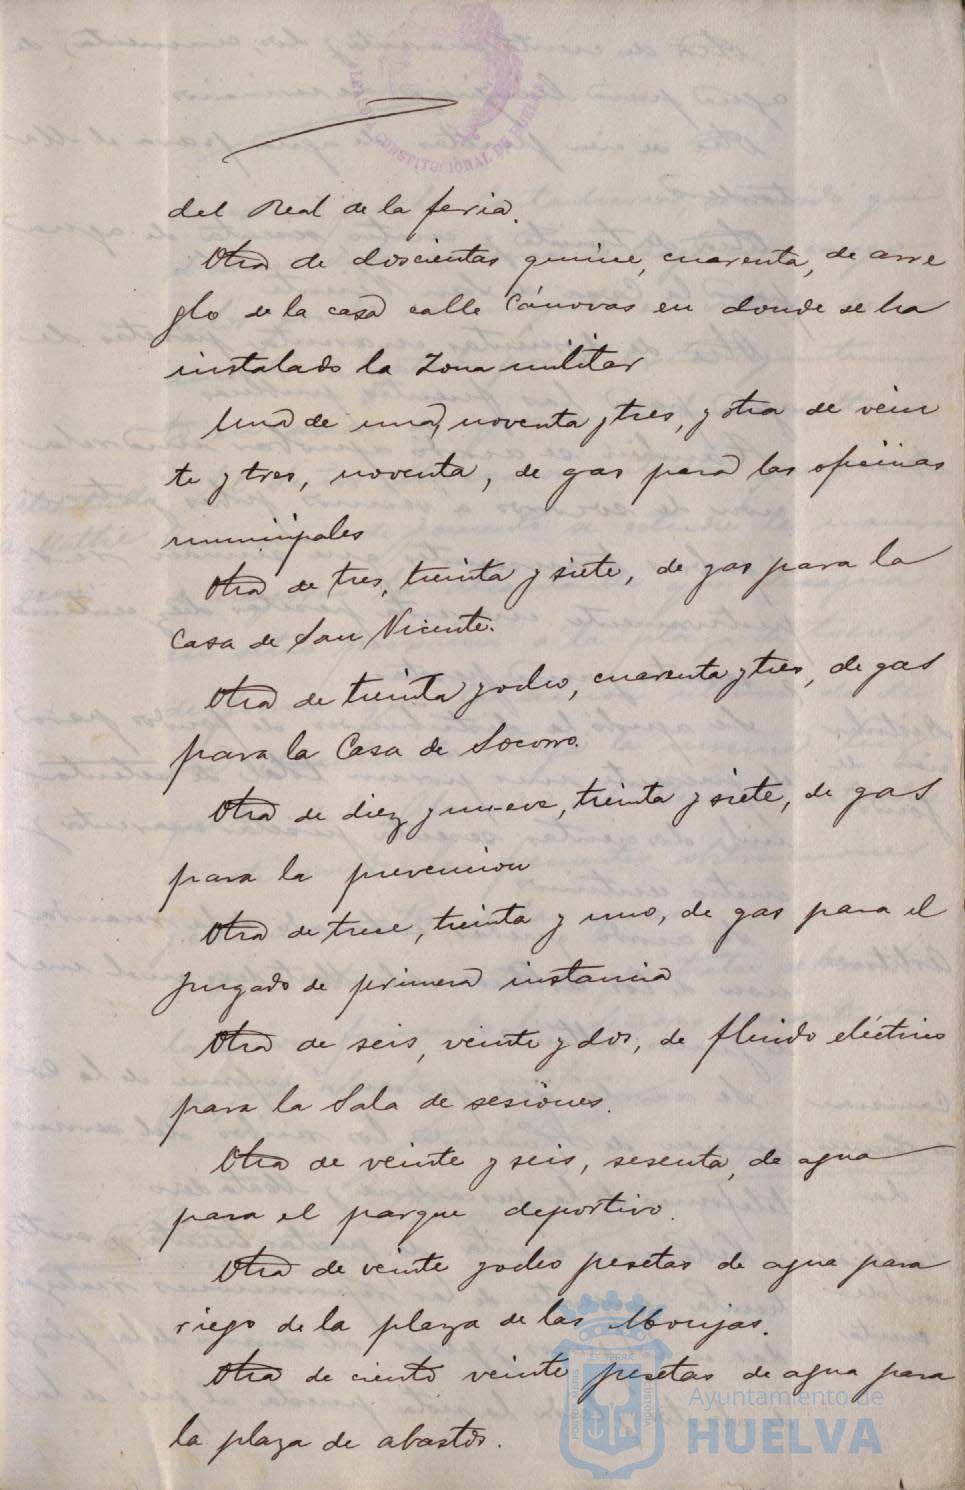 CONSTITUCIONAL DE HUELVA
del Real de la feria.
Otra de doscientas quince, cuarenta, de arre
glo de la casa calle Cánovas en donde se ha
instalado la Zona militar
Una de una, noventa y tres, y otra de vein
te y tres, noventa, de gas para las oficinas
municipales
Otra de tres, treinta y siete, de gas para la
Casa de San Vicente.
Otra de treinta y ocho, cuarenta y tres, de gas
para la Casa de Socorro.
Otra de diez y nueve, treinta y siete, de gas
para la prevencion
Otra de trece, treinta y uno, de gas para el
Juzgado de primera instancia
Otra de seis, veinte y dos, de fluido eléctrico
para la Sala de sesiones.
Otra de veinte y seis, sesenta, de agua
para el parque deportivo.
Otra de veinte y ocho pesetas de agua para
riego de la plaza de las Monjas.
Otra de ciento veinte pesetas de agua para
la plaza de abastos.
Ayuntamiento de
HUELVA